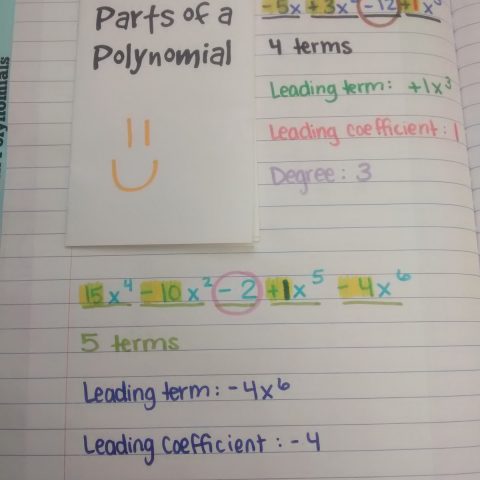 Parts of a
Polynomial
-5x +3x² -12 +1x³
4 terms
Leading term: +1x³
Leading coefficient: 1
Degree: 3
15x⁴ -10x² -2 +1x⁵ -4x⁶
5 terms
Leading term: -4x⁶
Leading Coefficient: -4
Polynomials